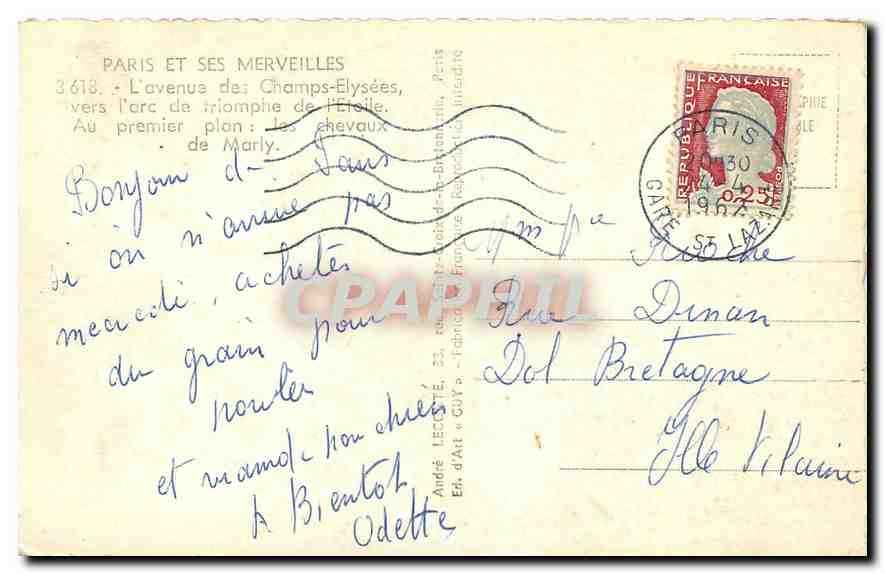 PARIS ET SES MERVEILLES
3 618. - L'avenue des Champs-Elysées,
vers l'arc de triomphe de l'Etoile.
Au premier plan : les chevaux
de Marly.
Bonjour de Paris
si on n'arrive pas
mercredi, achetés
du grain pour
poules
et viande pou chien
A Bientot
Odette
André LECONTE, 38, rue Sainte-Croix-de-la-Bretonnerie, Paris
Ed. d'Art « GUY » - Fabrication Française Reproduction interdite
REPUBLIQUE FRANÇAISE
POSTES
0,25
PARIS
20H30
4-4
GARE ST LAZARE
PHIE
BLE
Mm
Rue Dinan
Dol Bretagne
Ille Vilaine
CPAPHIL